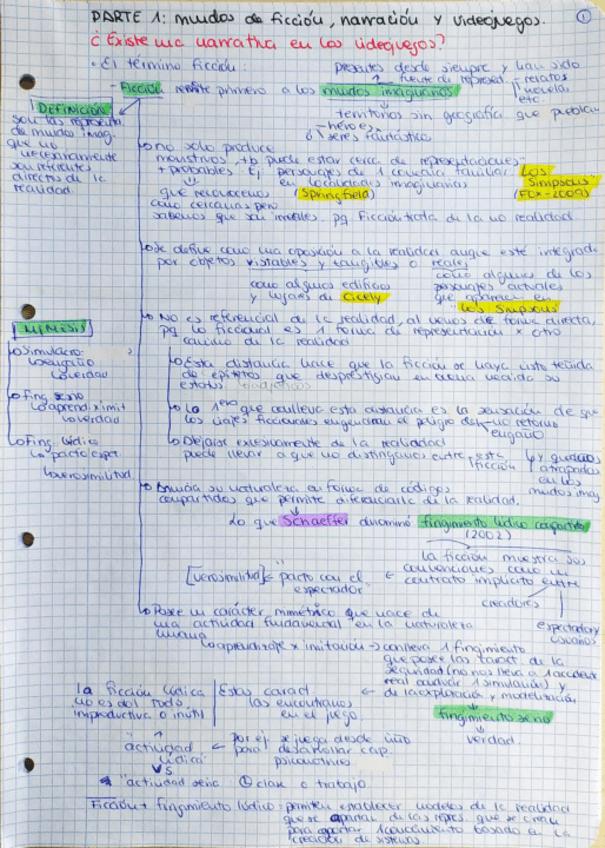 PARTE 1: mundos de ficción, narración y videojuegos. ①
¿Existe una narrativa en los videojuegos?
• El término ficción:
presentes desde siempre y han sido
fuente de represent. → relatos
novela
etc.
- Ficción remite primero a los mundos imaginarios
territorios sin geografía que pueblan
héroes
seres fantástico
Definición
son las representa.
de mundos imag.
que no
necesariamente
son referentes
directos de la
realidad
no solo produce
monstruos, tb puede estar cerca de representaciones
+ probables. Ej personajes de 1 comedia familiar Los
en localidades imaginarias Simpsons
que reconocemos (Springfield) (FOX-2009)
como cercanas pero
sabemos que son irreales, pq ficción trata de la no realidad
Se define como una oposición a la realidad aunque esté integrada
por objetos visitables y tangibles o reales
como algunos edificios
y lugares de Cicely
como algunos de los
personajes actuales
que aparecen en
"Los Simpsons"
No es referencial de la realidad, al menos de forma directa,
pq lo ficcional es 1 forma de representación x otro
camino de la realidad
Esta distancia hace que la ficción se haya visto teñida
de epítetos que desprestigian en buena medida su
estatus (adjetivos)
Lo 1ero que conlleva esta distancia es la sensación de que
los viajes ficcionales engendran el peligro del - no retorno
engaño
Dejarse excesivamente de la realidad
puede llevar a que no distingamos entre esta
ficción
y quedarnos
atrapados
en los
mundos imag
Mímesis
Simulacro
engaño
verdad
Fing. serio
aprend. x imit
verdad
Fing. lúdico
pacto espec.
verosimilitud
Enuncia su naturaleza en forma de códigos
compartidos que permite diferenciarla de la realidad.
Lo que Schaeffer denominó fingimiento lúdico compartido
(2002)
la ficción muestra sus
convenciones como un
contrato implícito entre
creadores
espectador y
usuarios
[verosimilitud] ← "pacto con el
espectador
Posee un carácter mimético que nace de
una actividad fundamental en la naturaleza
humana
aprendizaje x imitación → conlleva 1 fingimiento
que posee las caract. de la
seguridad (no nos lleva a 1 accidente
real conducir 1 simulación) y
de la exploración y modelización
fingimiento serio
verdad.
la ficción lúdica
no es del todo
improductiva o inútil
Estas caract
las encontramos
en el juego
"actividad
lúdica"
VS
por ej. se juega desde niño
para desarrollar cap.
psicomotrices
"actividad seria": clase o trabajo
Ficción + fingimiento lúdico: permiten establecer modelos de la realidad
que se apartan de las repres. que se crean
para aportar 1 conocimiento basado en la
creación de sistemas.